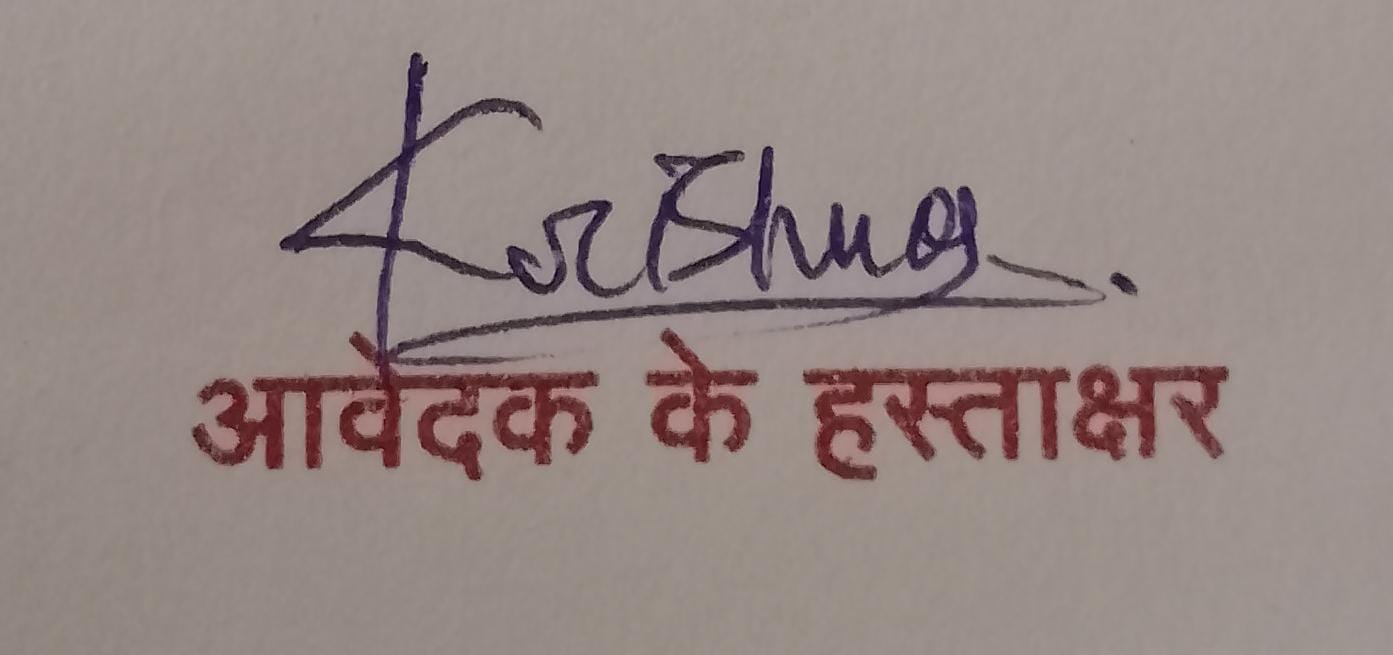 Krishna
आवेदक के हस्ताक्षर